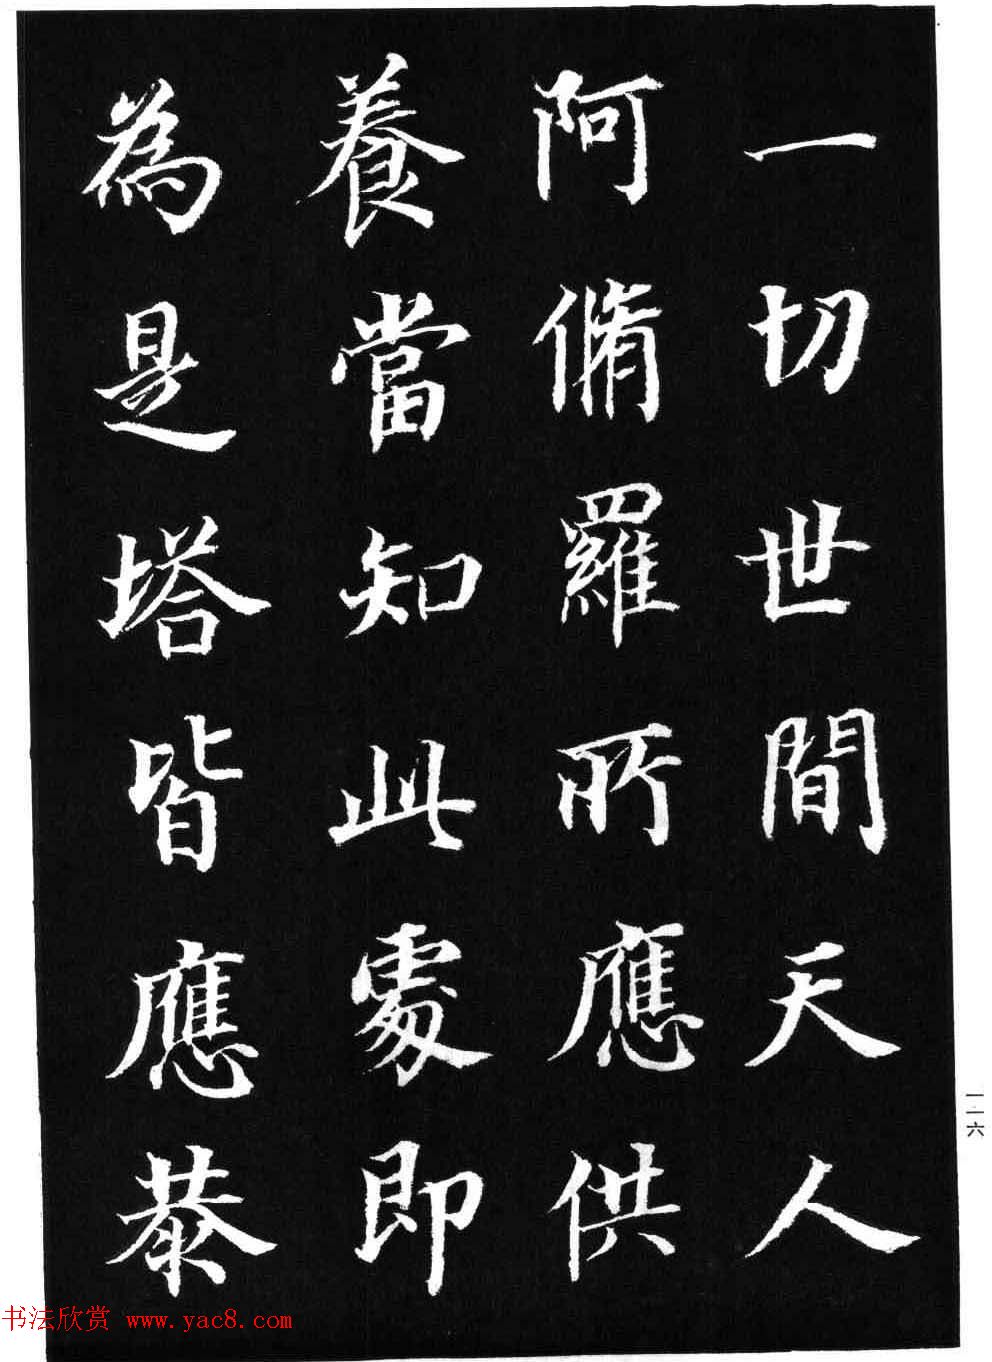 一切世間天人
阿脩羅所應供
養當知此處即
為是塔皆應恭
一一六
书法欣赏 www.yac8.com